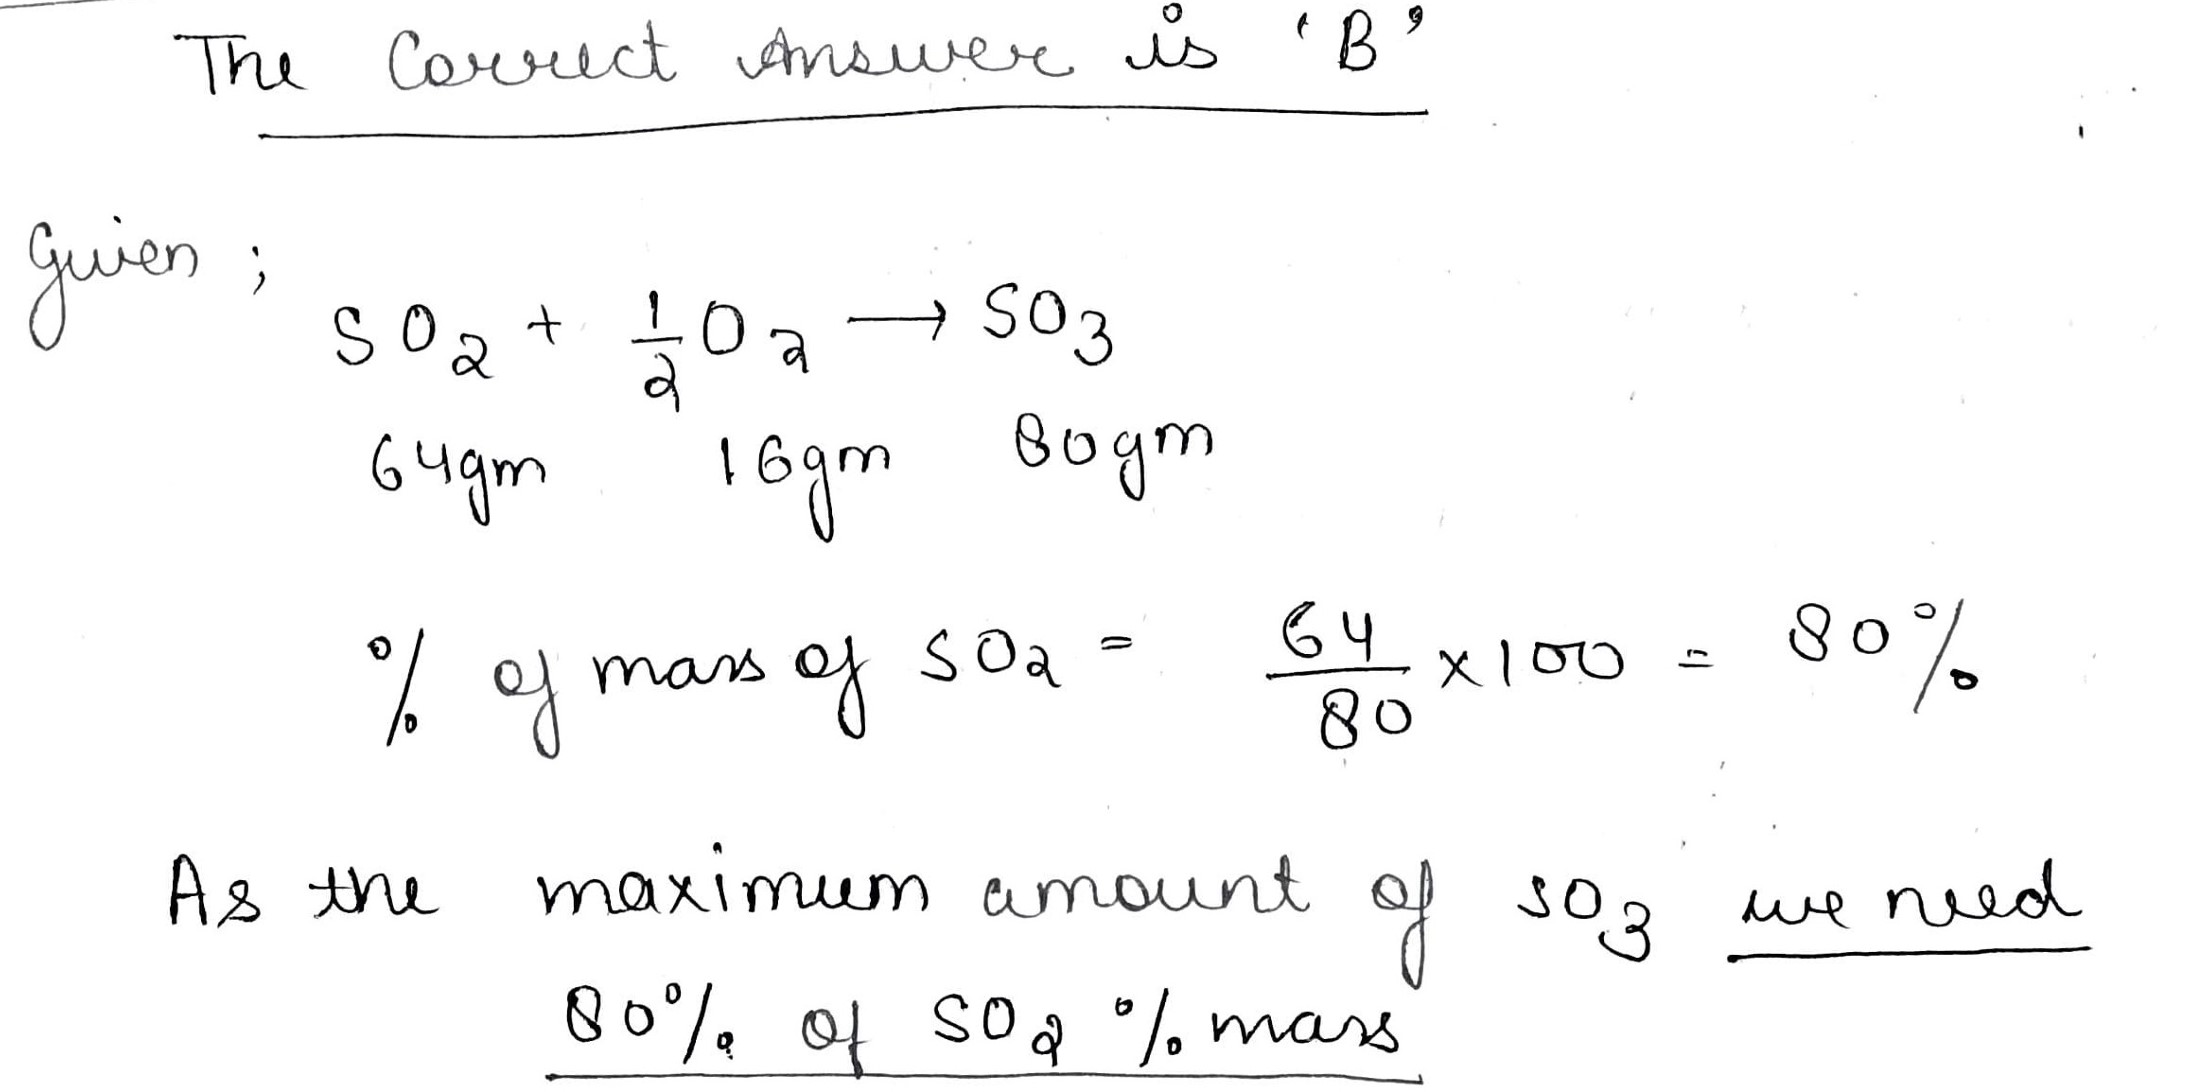 The Correct Answer is 'B'
Given ;
SO₂ + 1/2 O₂ → SO₃
64gm 16gm 80gm
% of mass of SO₂ = 64/80 × 100 = 80%
As the maximum amount of SO₃ we need
80% of SO₂ % mass